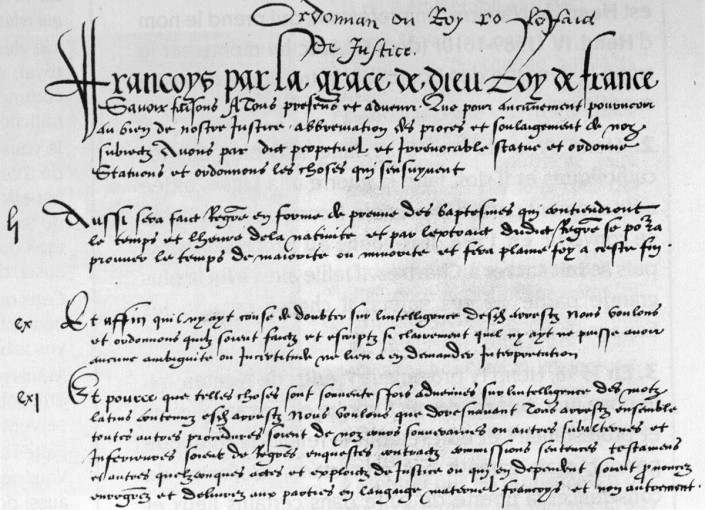 Ordonnan du Roy
de Justice.
Francoys par la grace de dieu Roy de france
Savoir faisons A Tous presens et advenir. Que pour aucunement pourveoir
au bien de nostre Justice, abbreviation des proces et soulaigement de noz
subiectz Avons par edict perpetuel et Irrevocable statue et ordonne
Statuons et ordonnons les choses qui sensuyvent.
Aussi sera faict Regre en forme de preuve des baptesmes qui contiendront
le temps et lheure dela nativite et par lextraict dudict Regre se pourra
prouver le temps de maiorite ou minorite et fera plaine foy a ceste fin.
cx Et affin quil ny ayt cause de doubter sur lintelligence desdz arrestz Nous voulons
et ordonnons quilz soient faictz et escriptz si clairement quil ny ayt ne puisse avoir
aucune ambiguite ou Incertitude ne lieu a en demander Interpretation
cxj Et pource que telles choses sont souventesfois advenues sur lintelligence des motz
latins contenuz esdz arrestz Nous voulons que doresnavant Tous arrestz ensemble
toutes autres procedures soient de noz cours souveraines ou autres subalternes et
Inferieures soient de Regres, enquestes contractz commissions sentences testamens
et autres quelzconques actes et exploictz de Justice ou qui en dependent soient pnoncez
enregrez et delivrez aux parties en langaige maternel francoys et non autrement.